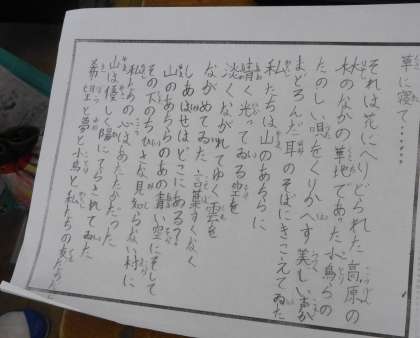 草に寝て……
それは花にへりどられた高原の
林のなかの草地であつた小鳥らの
たのしい唄をくりかへす美しい声が
まどろんだ耳のそばにきこえてゐた
私たちは山のあちらに
青く光つてゐる空を
淡くながれてゆく雲を
ながめてゐた言葉すくなく
しあはせはどこにある?
山のあちらのあの青い空にそして
その下のちひさな見知らない村に
私たちの心はあたたかだつた
山は優しく陽にてらされてゐた
希望と夢と小鳥と私たちの友だち